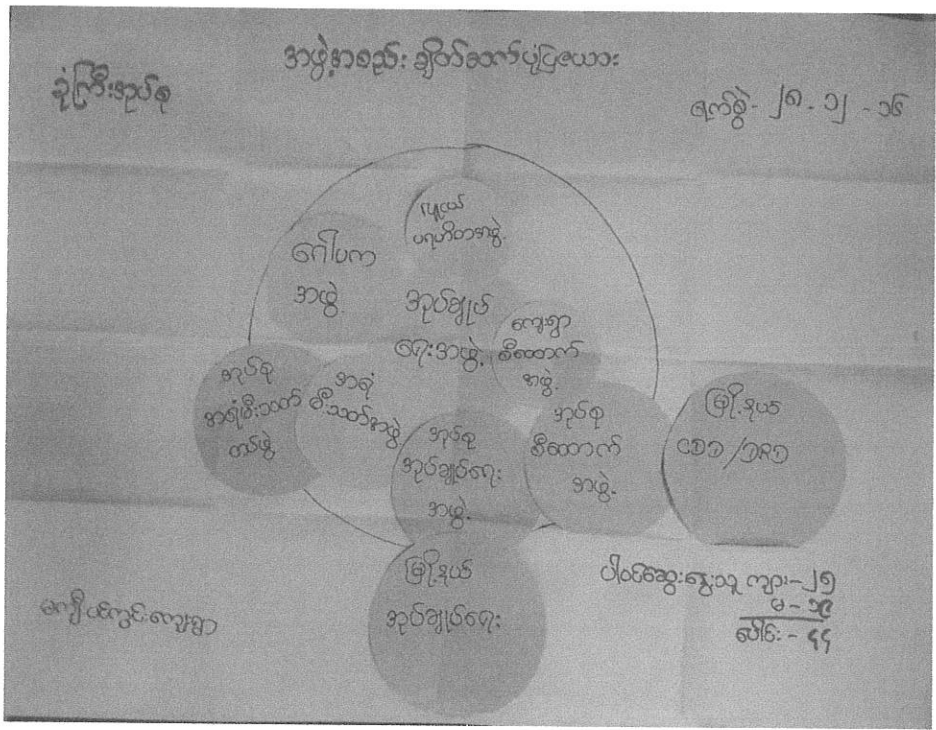 အဖွဲ့အစည်း ချိတ်ဆက်ပုံပြဇယား
ခုံကြီးအုပ်စု
ရက်စွဲ - ၂၈ - ၁၂ - ၁၆
လူငယ်
ပရဟိတအဖွဲ့
ဂေါပက
အဖွဲ့
အုပ်ချုပ်
ရေးအဖွဲ့
ကျေးရွာ
စီထောက်
အဖွဲ့
အုပ်စု
အရံမီးသတ်
တပ်ဖွဲ့
အရံ
မီးသတ်အဖွဲ့
အုပ်စု
အုပ်ချုပ်ရေး
အဖွဲ့
အုပ်စု
စီထောက်
အဖွဲ့
မြို့နယ်
CDD/DRD
မြို့နယ်
အုပ်ချုပ်ရေး
မကျီးပင်ကွင်းကျေးရွာ
ပါဝင်ဆွေးနွေးသူ ကျား - ၂၅
မ - ၁၉
ပေါင်း - ၄၄